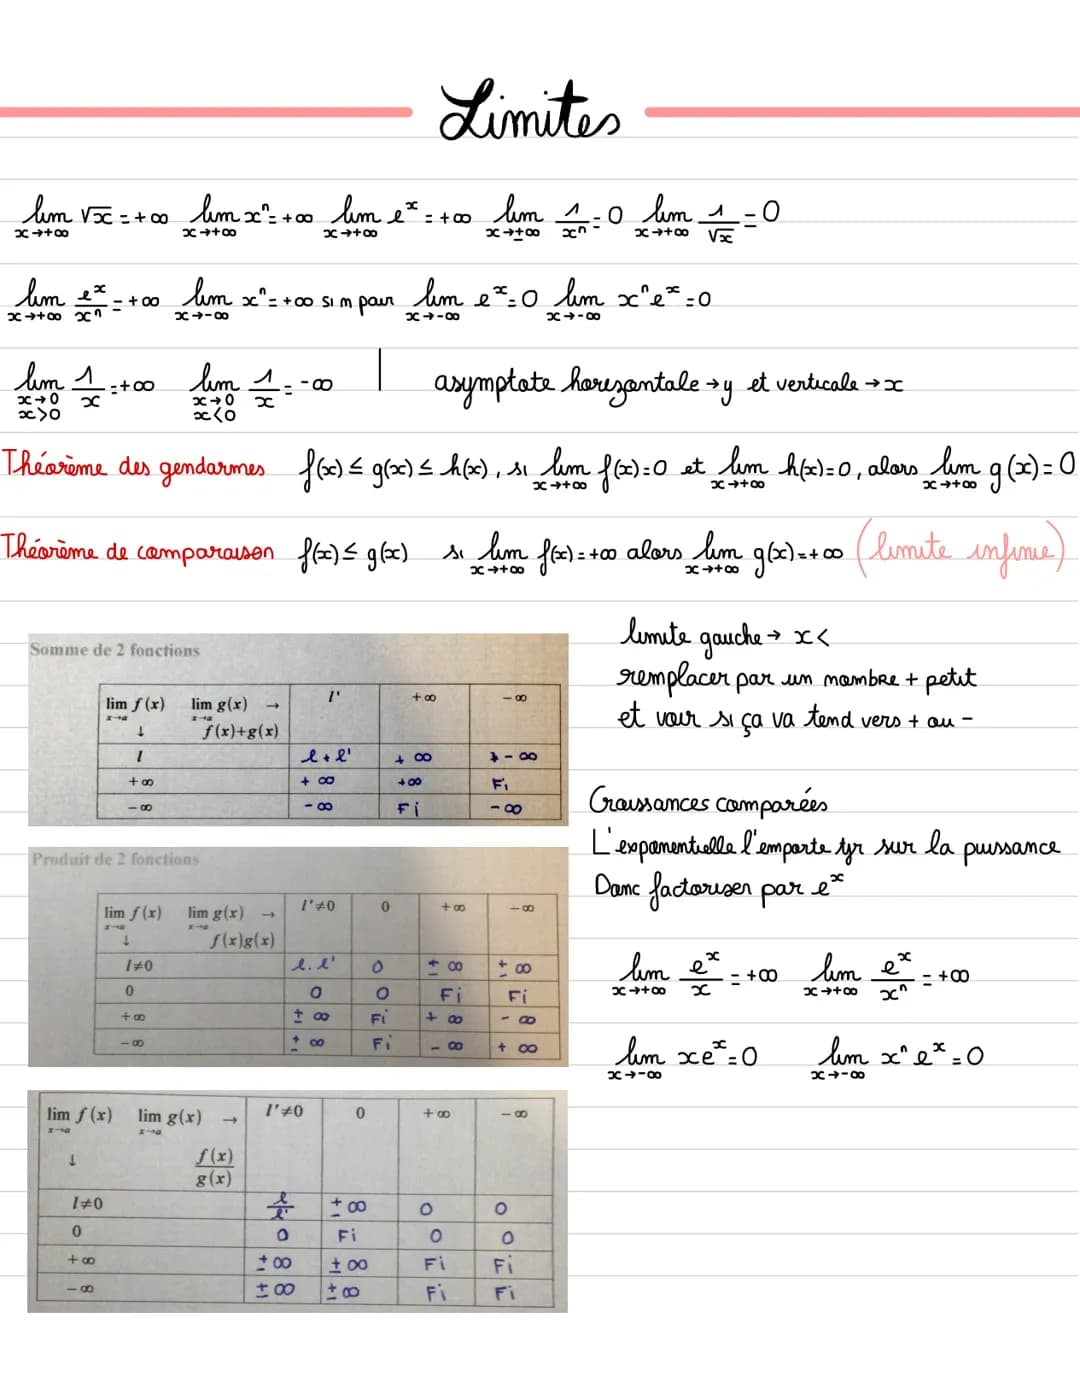 Limites
lim √x = +∞ lim xⁿ = +∞ lim eˣ = +∞ lim 1/xⁿ = 0 lim 1/√x = 0
x→+∞ x→+∞ x→+∞ x→±∞ x→+∞
lim eˣ/xⁿ = +∞ lim xⁿ = +∞ si n pair lim eˣ = 0 lim xⁿeˣ = 0
x→+∞ x→-∞ x→-∞ x→-∞
lim 1/x = +∞ lim 1/x = -∞ | asymptote horizontale → y et verticale → x
x→0 x→0
x>0 x<0
Théorème des gendarmes f(x) ≤ g(x) ≤ h(x), si lim f(x) = 0 et lim h(x) = 0, alors lim g(x) = 0
x→+∞ x→+∞ x→+∞
Théorème de comparaison f(x) ≤ g(x) si lim f(x) = +∞ alors lim g(x) = +∞ (limite infinie)
x→+∞ x→+∞
Somme de 2 fonctions
lim f(x) lim g(x) → l' +∞ -∞
x→a x→a
↓ f(x)+g(x)
l l+l' +∞ -∞
+∞ +∞ +∞ Fi
-∞ -∞ Fi -∞
limite gauche → x<
remplacer par un nombre + petit
et voir si ça va tend vers + ou -
Produit de 2 fonctions
lim f(x) lim g(x) → l'≠0 0 +∞ -∞
x→a x→a
↓ f(x)g(x)
l≠0 l.l' 0 ±∞ ±∞
0 0 0 Fi Fi
+∞ ±∞ Fi +∞ -∞
-∞ ±∞ Fi -∞ +∞
Croissances comparées
L'exponentielle l'emporte tjr sur la puissance
Donc factoriser par eˣ
lim eˣ/x = +∞ lim eˣ/xⁿ = +∞
x→+∞ x→+∞
lim xeˣ = 0 lim xⁿeˣ = 0
x→-∞ x→-∞
lim f(x) lim g(x) → l'≠0 0 +∞ -∞
x→a x→a
↓ f(x)/g(x)
l≠0 l/l' ±∞ 0 0
0 0 Fi 0 0
+∞ ±∞ ±∞ Fi Fi
-∞ ±∞ ±∞ Fi Fi